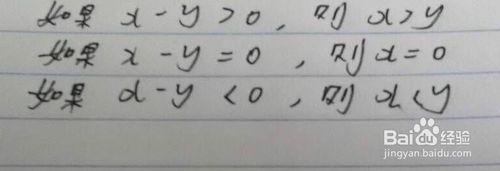 如果 x-y>0, 则 x>y
如果 x-y=0, 则 x=0
如果 x-y<0, 则 x<y
Baidu经验
jingyan.baidu.com